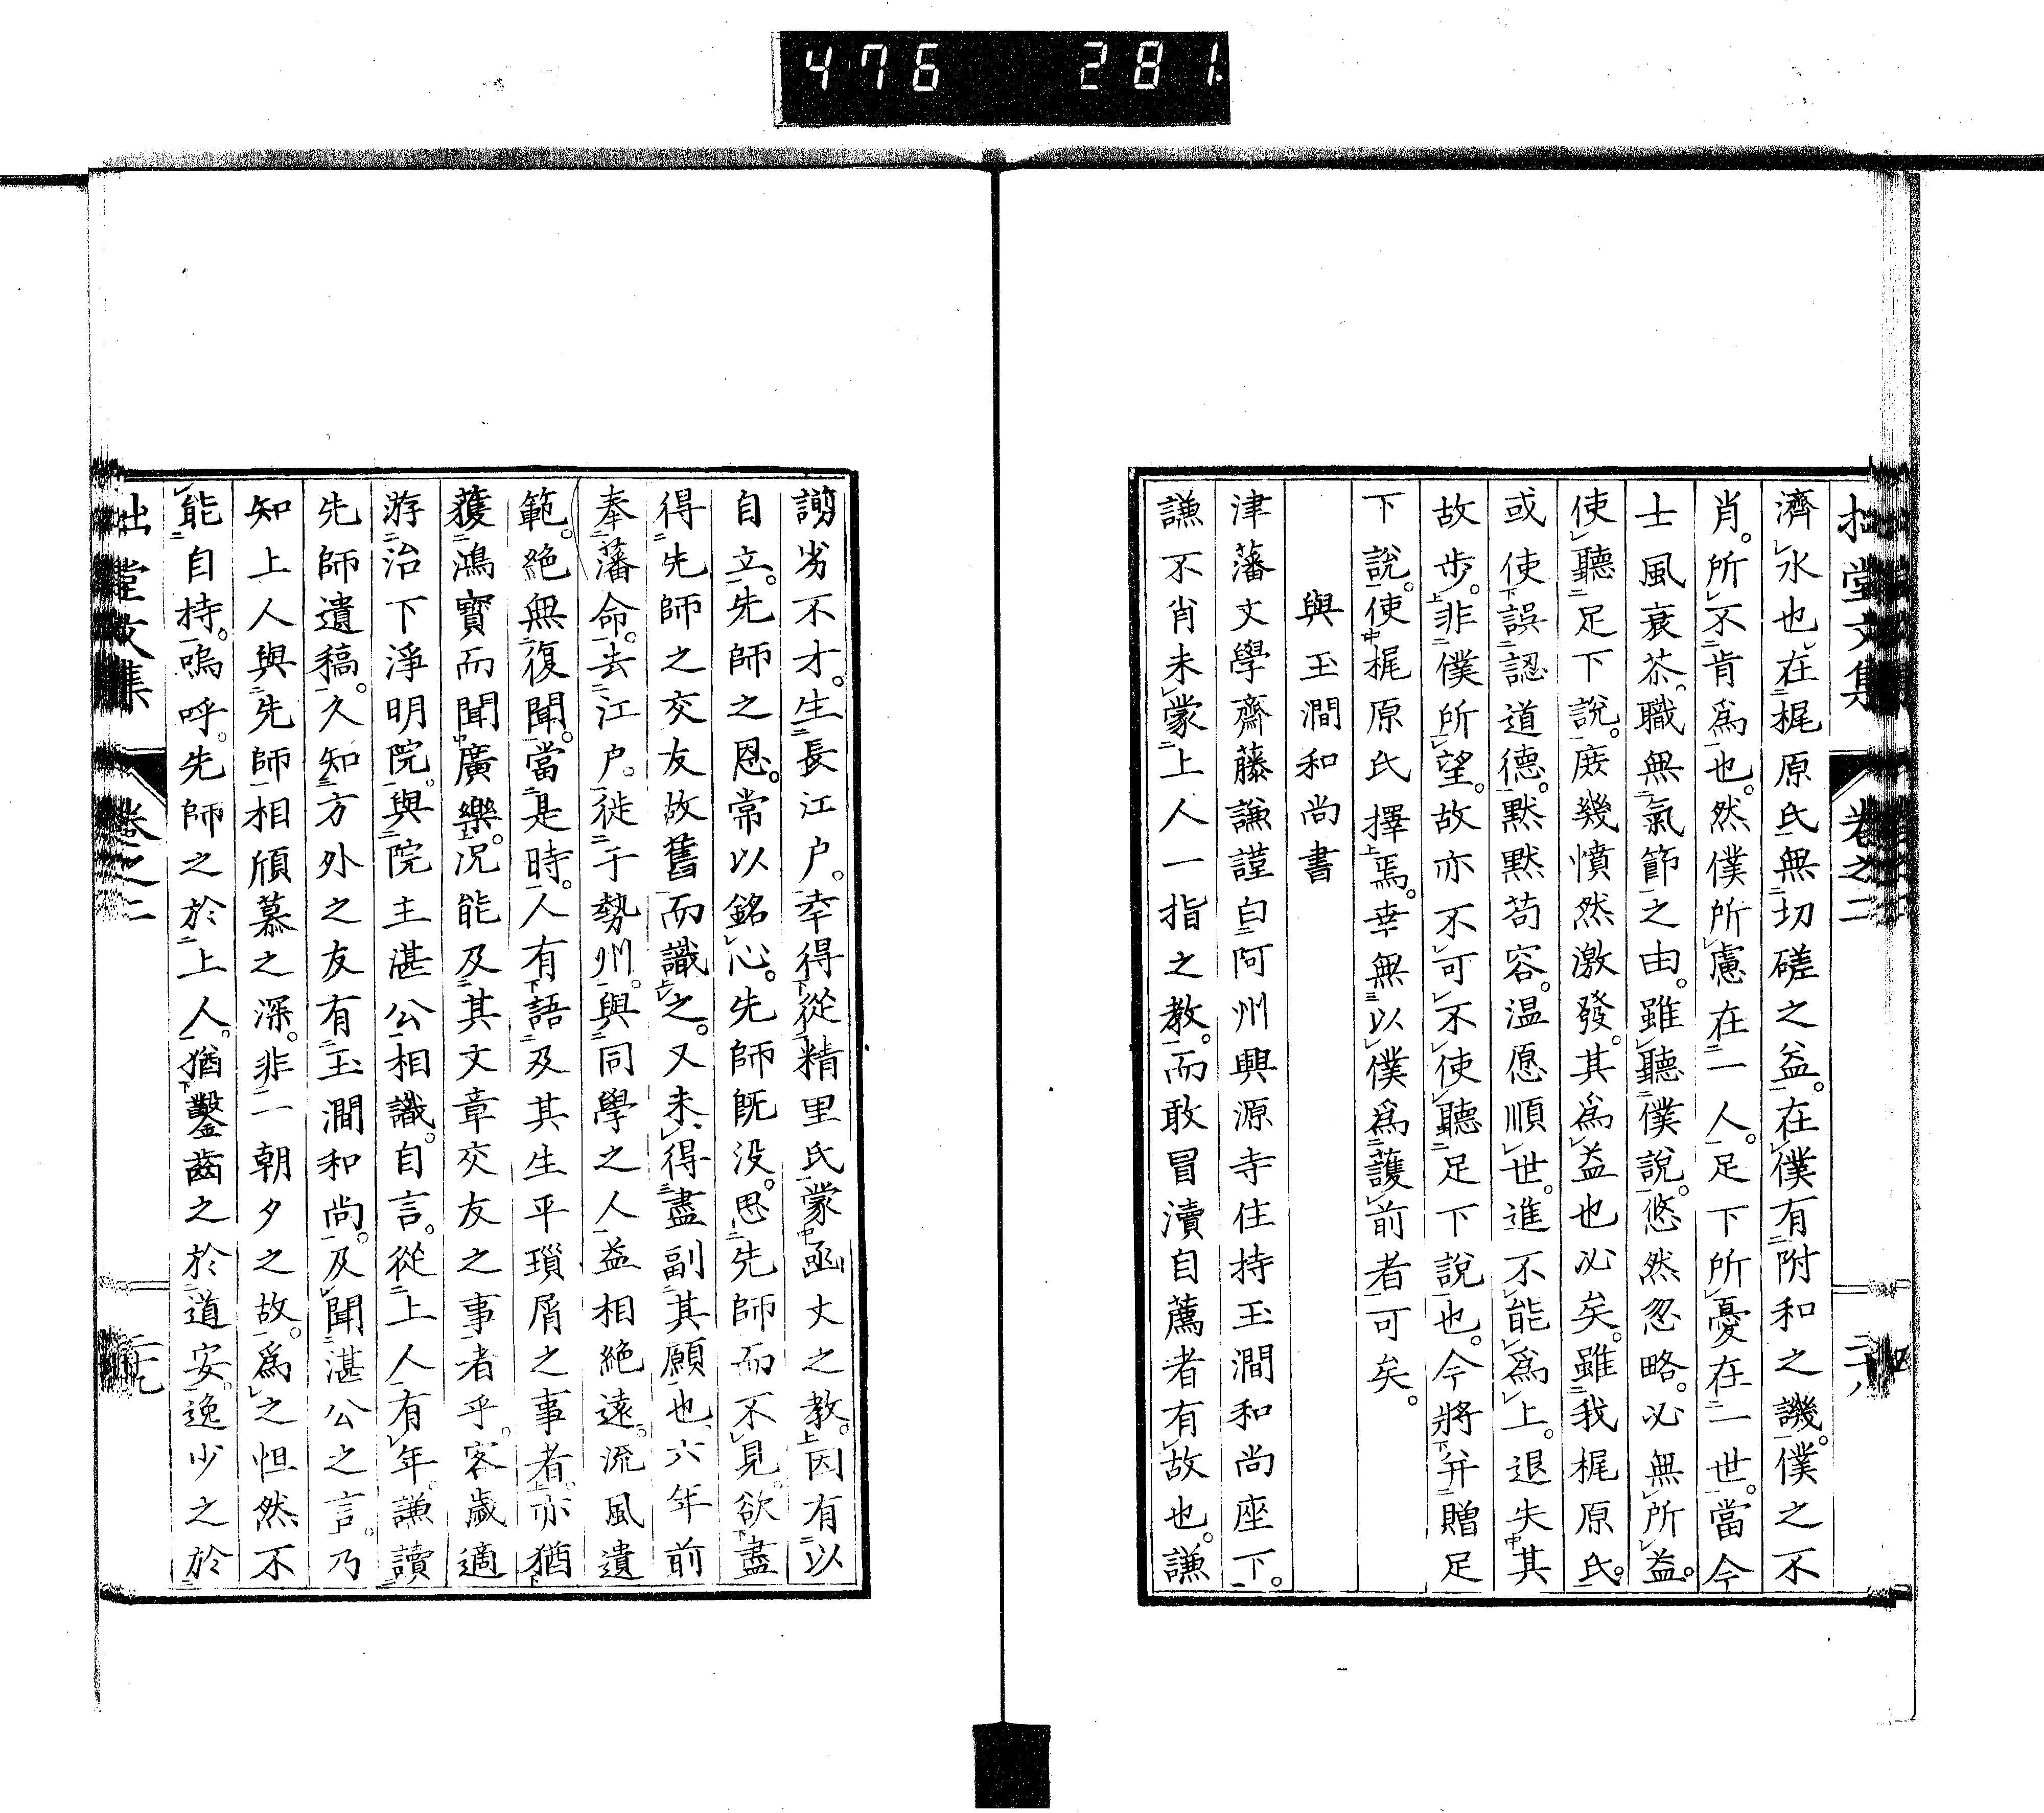 476 281
拙堂文集 卷之二 二八
濟水也在梶原氏無切磋之益。在僕有附和之譏。僕之不
肖。所不肯爲也。然僕所慮在一人。足下所憂在一世。當今
士風衰苶。職無氣節之由。雖聽僕說。悠然忽略。必無所益。
使聽足下說。庻幾憤然激發。其爲益也必矣。雖我梶原氏。
或使誤認道德。默默苟容。温愿順世。進不能爲上。退失其
故歩。非僕所望。故亦不可不使聽足下說也。今將并贈足
下說。使梶原氏擇焉。幸無以僕爲護前者可矣。
與玉澗和尚書
津藩文學齋藤謙謹白阿州興源寺住持玉澗和尚座下。
謙不肖未蒙上人一指之教。而敢冒瀆自薦者有故也。謙
謭劣不才。生長江戸。幸得從精里氏蒙函丈之教。因有以
自立。先師之恩。常以銘心。先師既没。思先師而不見。欲盡
得先師之交友故舊而識之。又未得盡副其願也。六年前
奉藩命。去江戸。徙于勢州。與同學之人益相絶遠。流風遺
範。絶無復聞。當是時。人有語及其生平瑣屑之事者。亦猶
獲鴻寳而聞廣樂。况能及其文章交友之事者乎。客歳適
游治下淨明院。與院主湛公相識。自言。從上人有年。謙讀
先師遺稿。久知方外之友有玉澗和尚。及聞湛公之言。乃
知上人與先師相頎慕之深。非一朝夕之故。爲之怛然不
能自持。嗚呼。先師之於上人。猶鑿齒之於道安。逸少之於
拙堂文集 卷之二 二十九